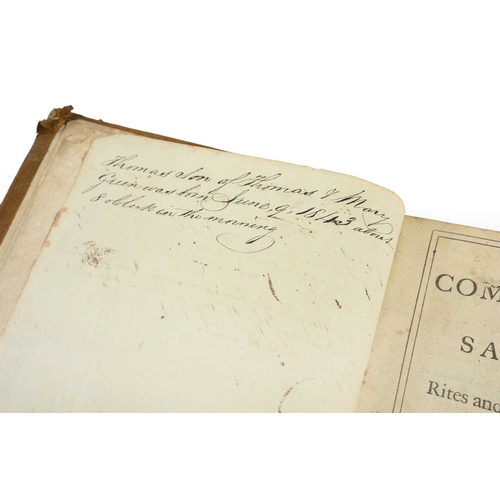 Thomas Son of Thomas & Mary
Green was born June 9. 1843 about
8 oblock in the morning
COM
SA
Rites and